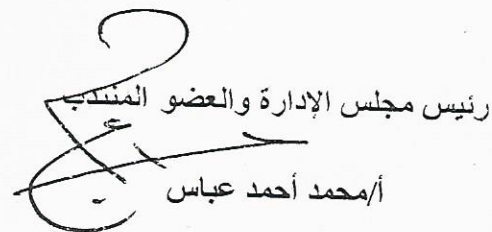 رئيس مجلس الإدارة والعضو المنتدب
أ/محمد أحمد عباس